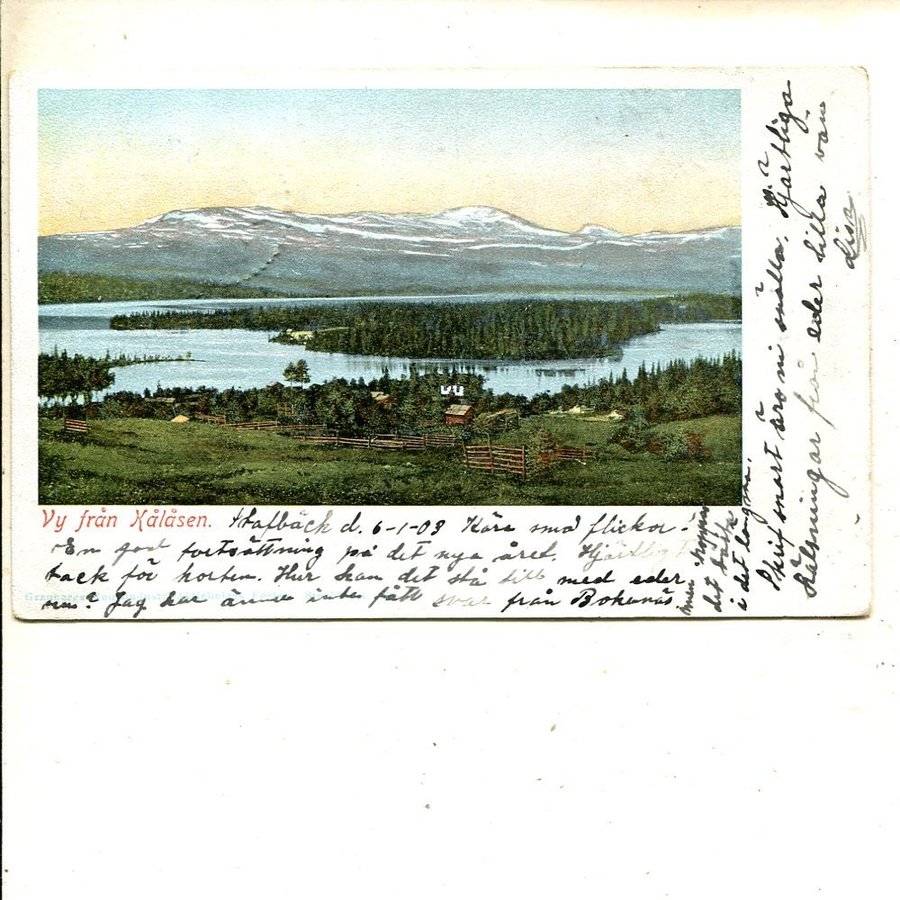 Vy från Kålåsen.
Stafbäck d. 6-1-03 Kära små flickor!
En god fortsättning på det nya året. Hjärtligt
tack för korten. Hur kan det stå till med eder
nu? Jag har ännu inte fått svar från Bokenäs
men hoppas
det båtte
i det längsta.
Skrif snart äro ni snälla. Hjärtliga
Hälsningar från eder lilla vän
Lisa